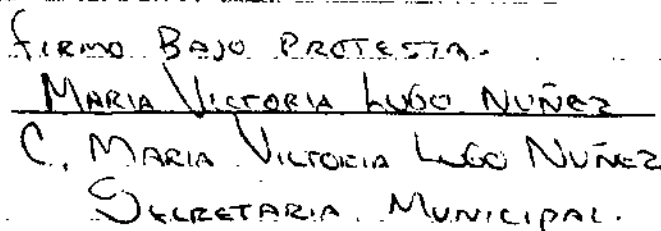 FIRMO BAJO PROTESTA.
MARIA VICTORIA LUGO NUÑEZ
C. MARIA VICTORIA LUGO NUÑEZ
SECRETARIA MUNICIPAL.